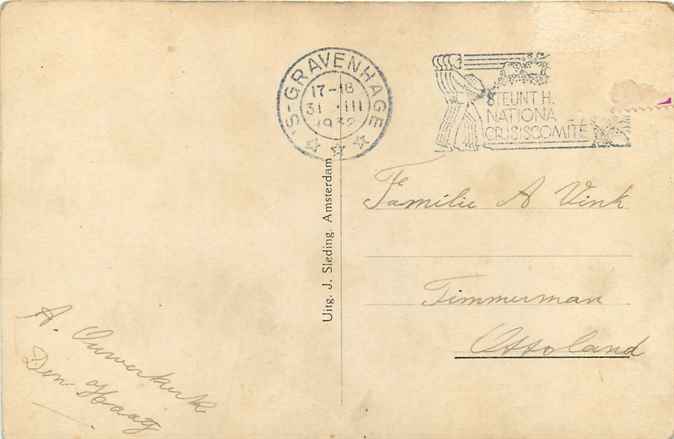 'S-GRAVENHAGE
17-18
31 III
1932
STEUNT H.
NATIONA
CRISISCOMITE
Uitg. J. Sleding, Amsterdam
Familie A Vink
Timmerman
Ottoland
A. Ouwerkerk
Den Haag